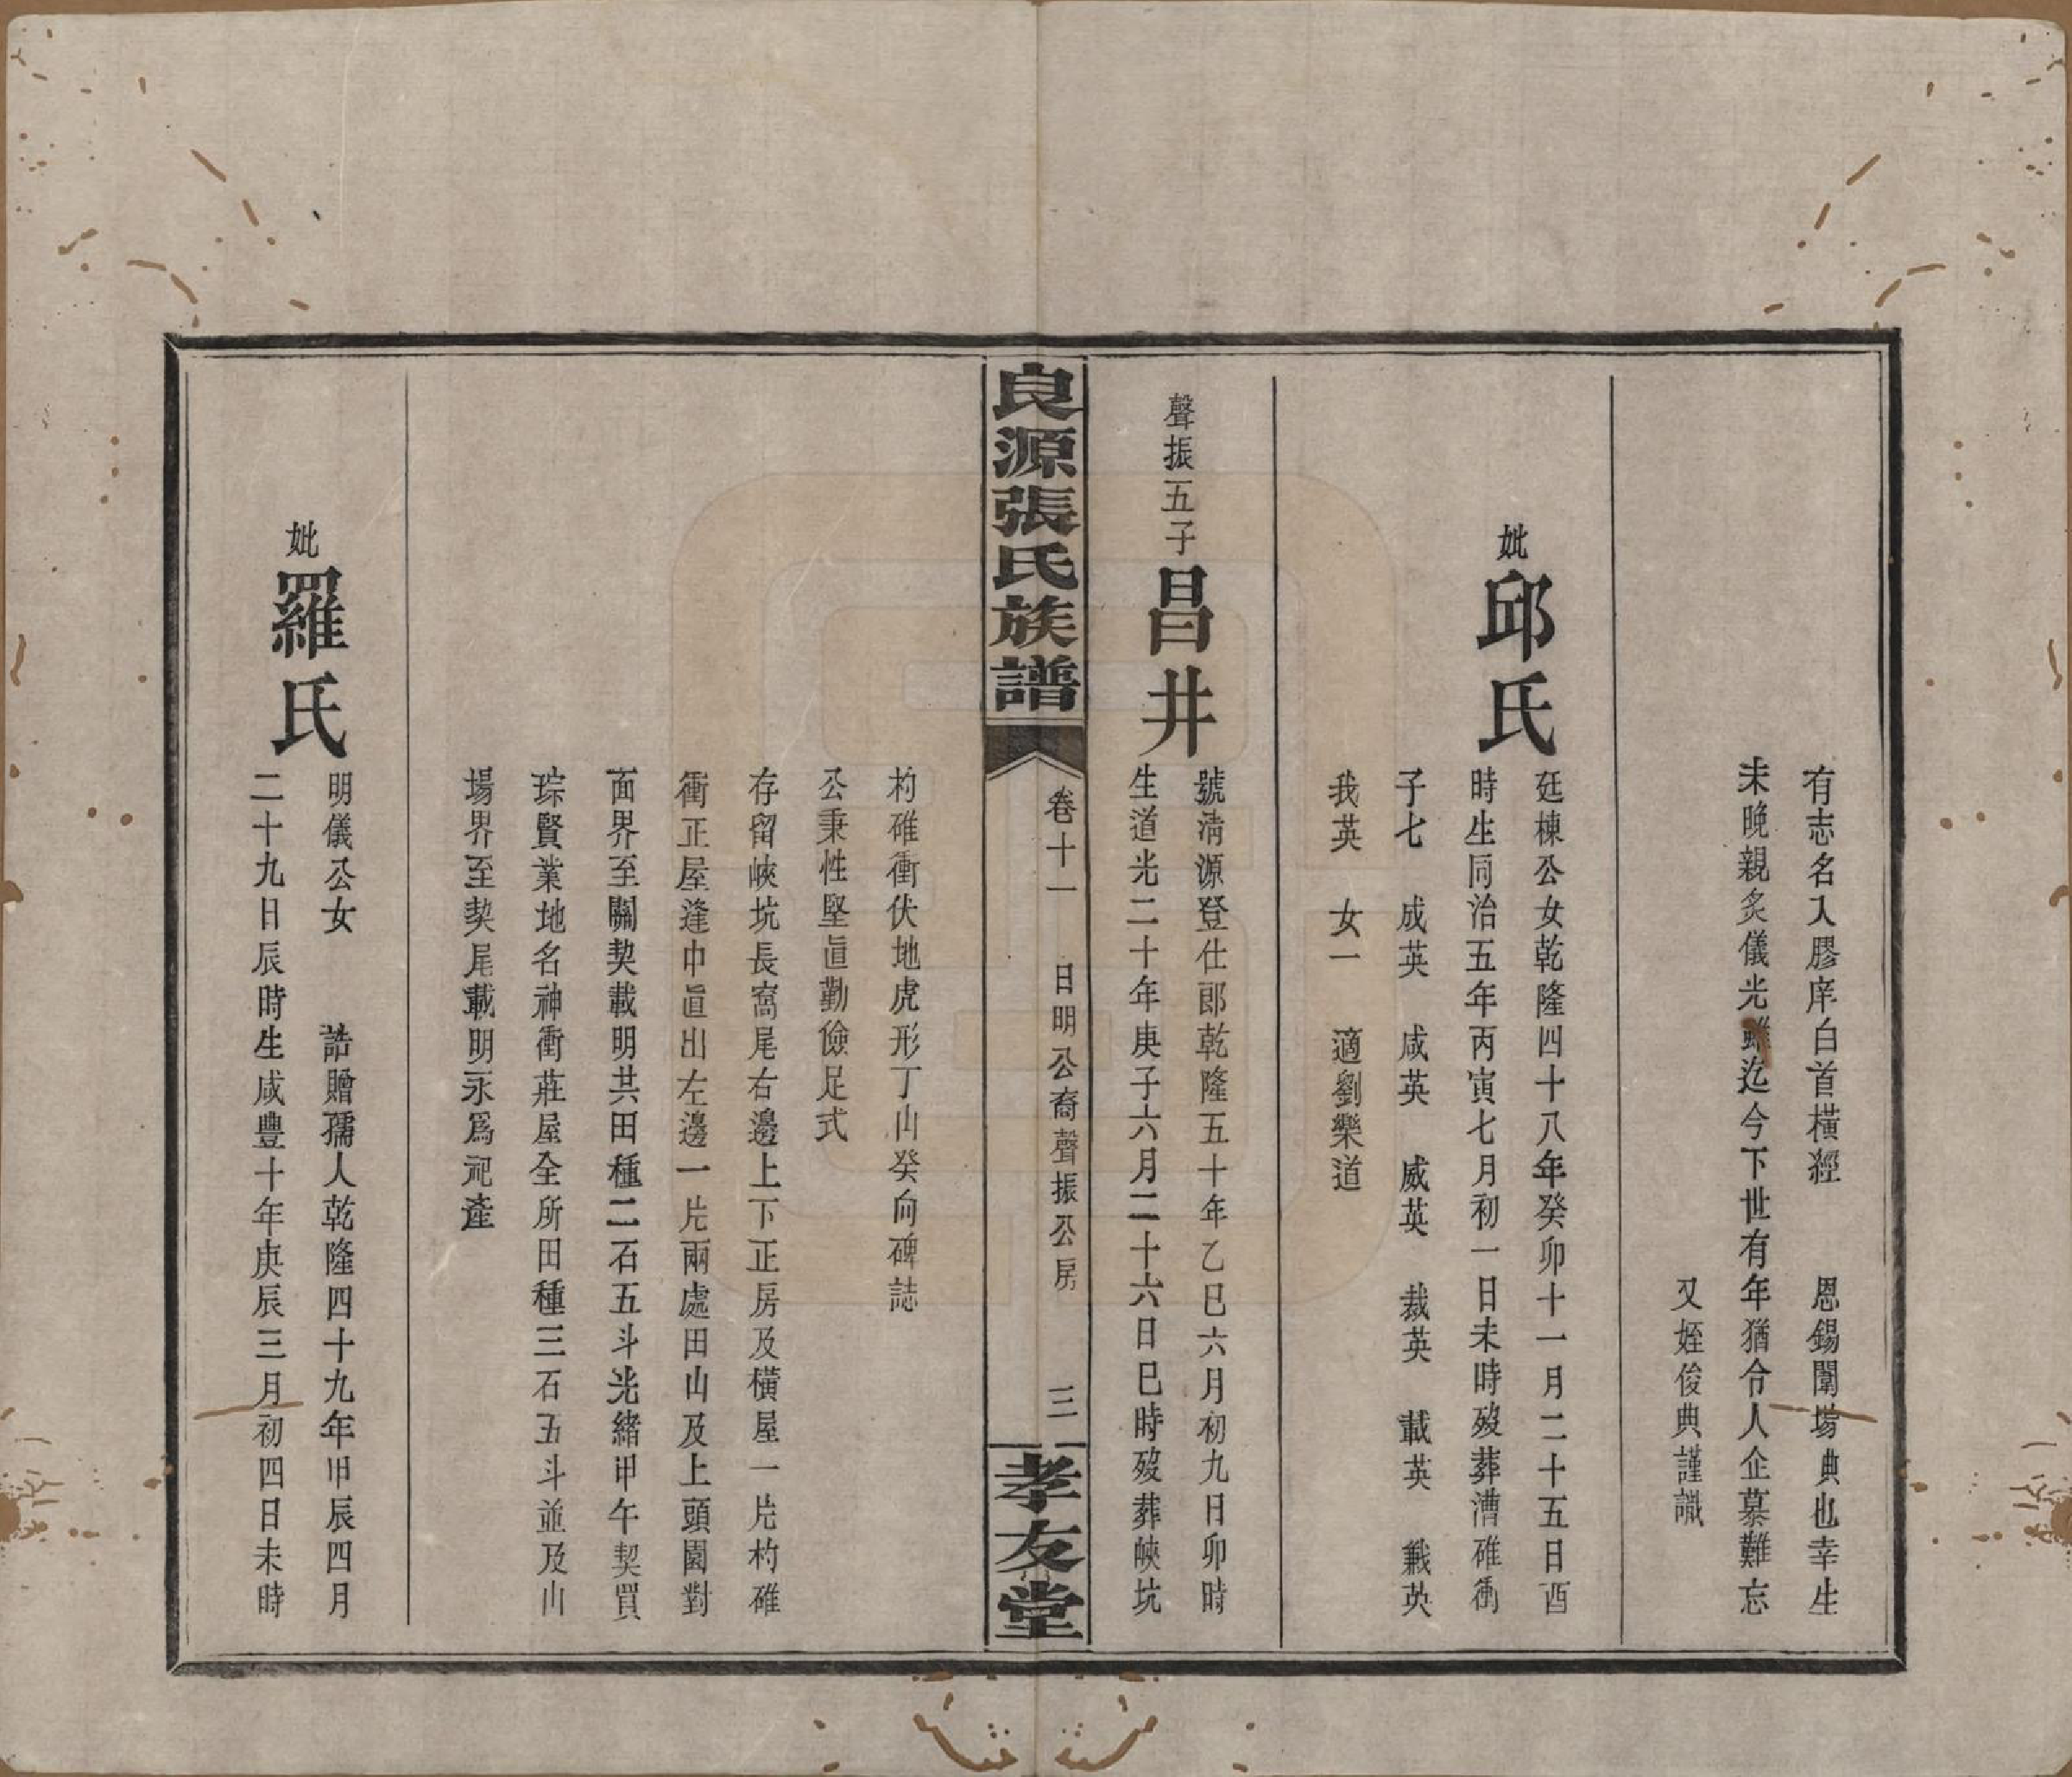 有志名入膠庠白首橫經 恩錫闈塲典也幸生
未晚親炙儀光雖迄今下世有年猶令人企慕難忘
又姪俊典謹識
妣邱氏
廷棟公女乾隆四十八年癸卯十一月二十五日酉
時生同治五年丙寅七月初一日未時歿葬漕碓衝
子七 成英 咸英 威英 裁英 載英 戴英
我英 女一 適劉樂道
聲振五子昌井
號淸源登仕郎乾隆五十年乙巳六月初九日卯時
生道光二十年庚子六月二十六日巳時歿葬峽坑
良源張氏族譜 卷十一 日明公裔聲振公房 三 孝友堂
杓碓衝伏地虎形丁山癸向碑誌
公秉性堅直勤儉足式
存留峽坑長窩尾右邊上下正房及橫屋一片杓碓
衝正屋逢中直出左邊一片兩處田山及上頭園對
面界至關契載明共田種二石五斗光緒甲午契買
琮賢業地名神衝莊屋全所田種三石五斗並及山
場界至契尾載明永爲祀產
妣羅氏
明儀公女 誥贈孺人乾隆四十九年甲辰四月
二十九日辰時生咸豐十年庚辰三月初四日未時